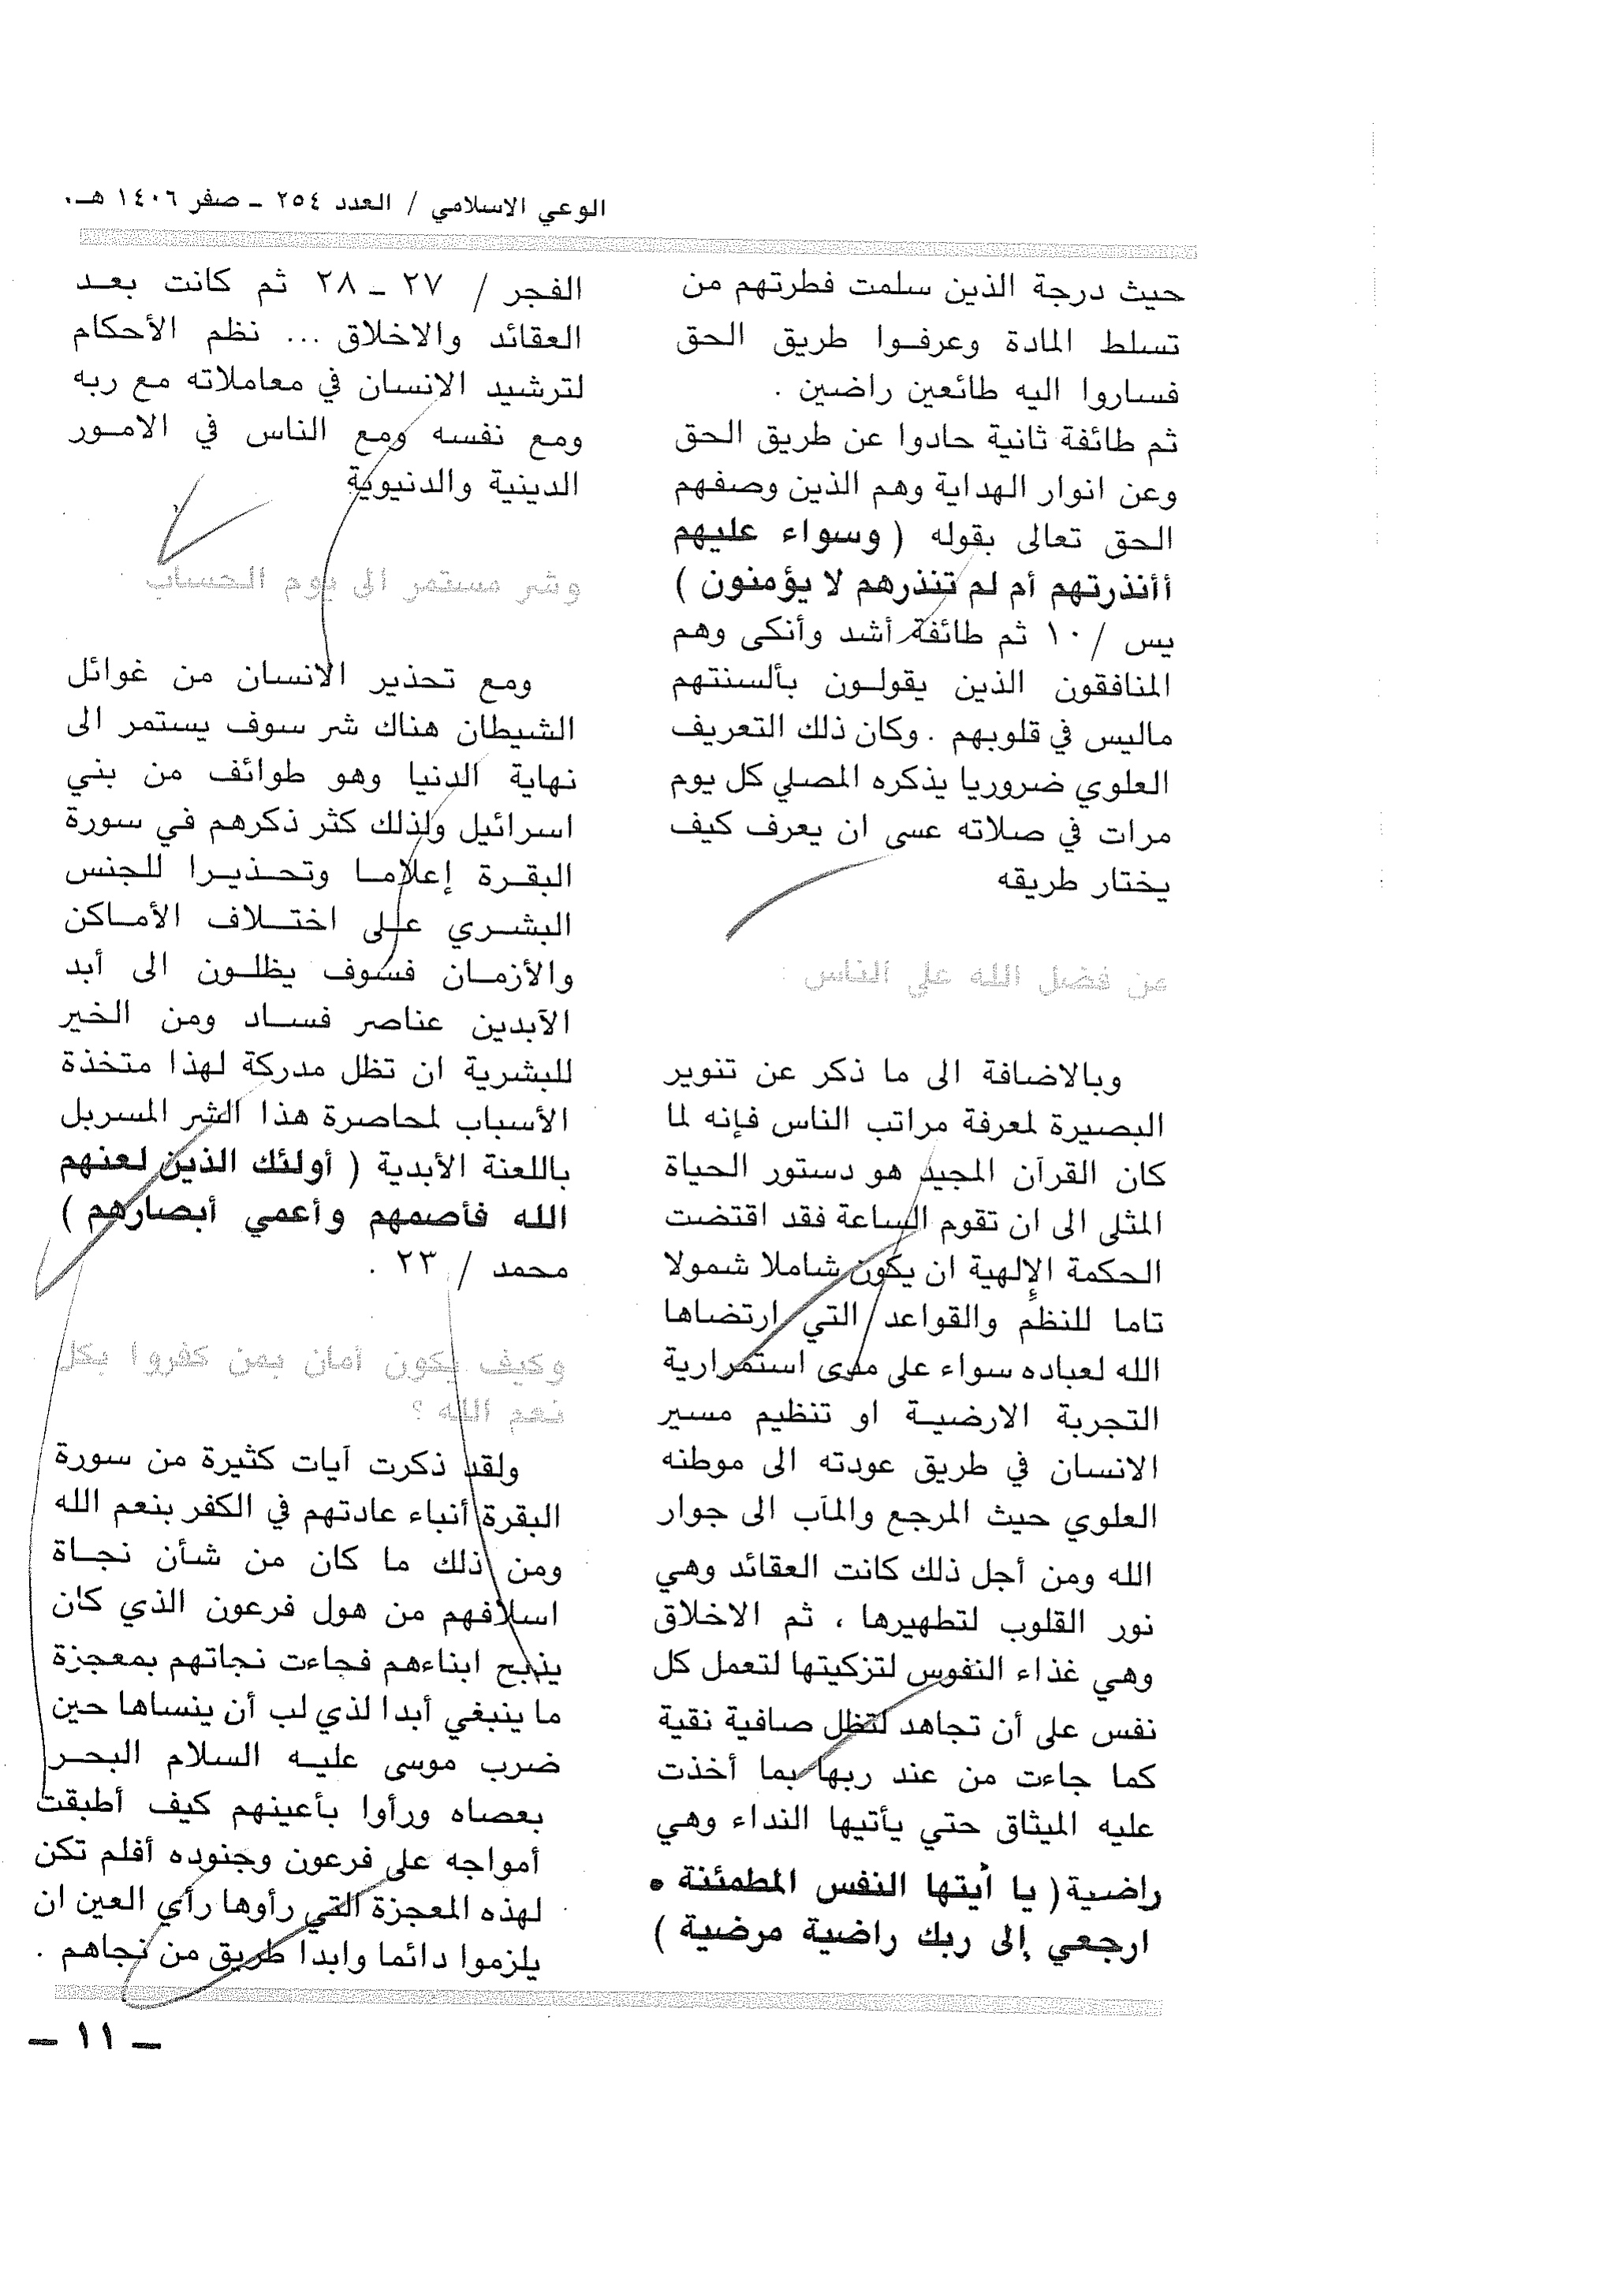 الوعي الاسلامي / العدد ٢٥٤ ـ صفر ١٤٠٦ هـ.
حيث درجة الذين سلمت فطرتهم من
تسلط المادة وعرفوا طريق الحق
فساروا اليه طائعين راضين .
ثم طائفة ثانية حادوا عن طريق الحق
وعن انوار الهداية وهم الذين وصفهم
الحق تعالى بقوله ( وسواء عليهم
أأنذرتهم أم لم تنذرهم لا يؤمنون )
يس / ١٠ ثم طائفة أشد وأنكى وهم
المنافقون الذين يقولون بألسنتهم
ماليس في قلوبهم . وكان ذلك التعريف
العلوي ضروريا يذكره المصلي كل يوم
مرات في صلاته عسى ان يعرف كيف
يختار طريقه
من فضل الله على الناس :
وبالاضافة الى ما ذكر عن تنوير
البصيرة لمعرفة مراتب الناس فإنه لما
كان القرآن المجيد هو دستور الحياة
المثلى الى ان تقوم الساعة فقد اقتضت
الحكمة الإلهية ان يكون شاملا شمولا
تاما للنظم والقواعد التي ارتضاها
الله لعباده سواء على مدى استمرارية
التجربة الارضية او تنظيم مسير
الانسان في طريق عودته الى موطنه
العلوي حيث المرجع والمآب الى جوار
الله ومن أجل ذلك كانت العقائد وهي
نور القلوب لتطهيرها ، ثم الاخلاق
وهي غذاء النفوس لتزكيتها لتعمل كل
نفس على أن تجاهد لتظل صافية نقية
كما جاءت من عند ربها بما أخذت
عليه الميثاق حتي يأتيها النداء وهي
راضية ( يا أيتها النفس المطمئنة •
ارجعي إلى ربك راضية مرضية )
الفجر / ٢٧ ـ ٢٨ ثم كانت بعد
العقائد والاخلاق ... نظم الأحكام
لترشيد الانسان في معاملاته مع ربه
ومع نفسه ومع الناس في الامور
الدينية والدنيوية
وشر مستمر الى يوم الحساب
ومع تحذير الانسان من غوائل
الشيطان هناك شر سوف يستمر الى
نهاية الدنيا وهو طوائف من بني
اسرائيل ولذلك كثر ذكرهم في سورة
البقرة إعلاما وتحذيرا للجنس
البشري على اختلاف الأماكن
والأزمان فسوف يظلون الى أبد
الآبدين عناصر فساد ومن الخير
للبشرية ان تظل مدركة لهذا متخذة
الأسباب لمحاصرة هذا الشر المسربل
باللعنة الأبدية ( أولئك الذين لعنهم
الله فأصمهم وأعمي أبصارهم )
محمد / ٢٣ .
وكيف يكون أمان بمن كفروا بكل
نعم الله ؟
ولقد ذكرت آيات كثيرة من سورة
البقرة أنباء عادتهم في الكفر بنعم الله
ومن ذلك ما كان من شأن نجاة
اسلافهم من هول فرعون الذي كان
يذبح ابناءهم فجاءت نجاتهم بمعجزة
ما ينبغي أبدا لذي لب أن ينساها حين
ضرب موسى عليه السلام البحر
بعصاه ورأوا بأعينهم كيف أطبقت
أمواجه على فرعون وجنوده أفلم تكن
لهذه المعجزة التي رأوها رأي العين ان
يلزموا دائما وابدا طريق من نجاهم .
ـ ١١ ـ